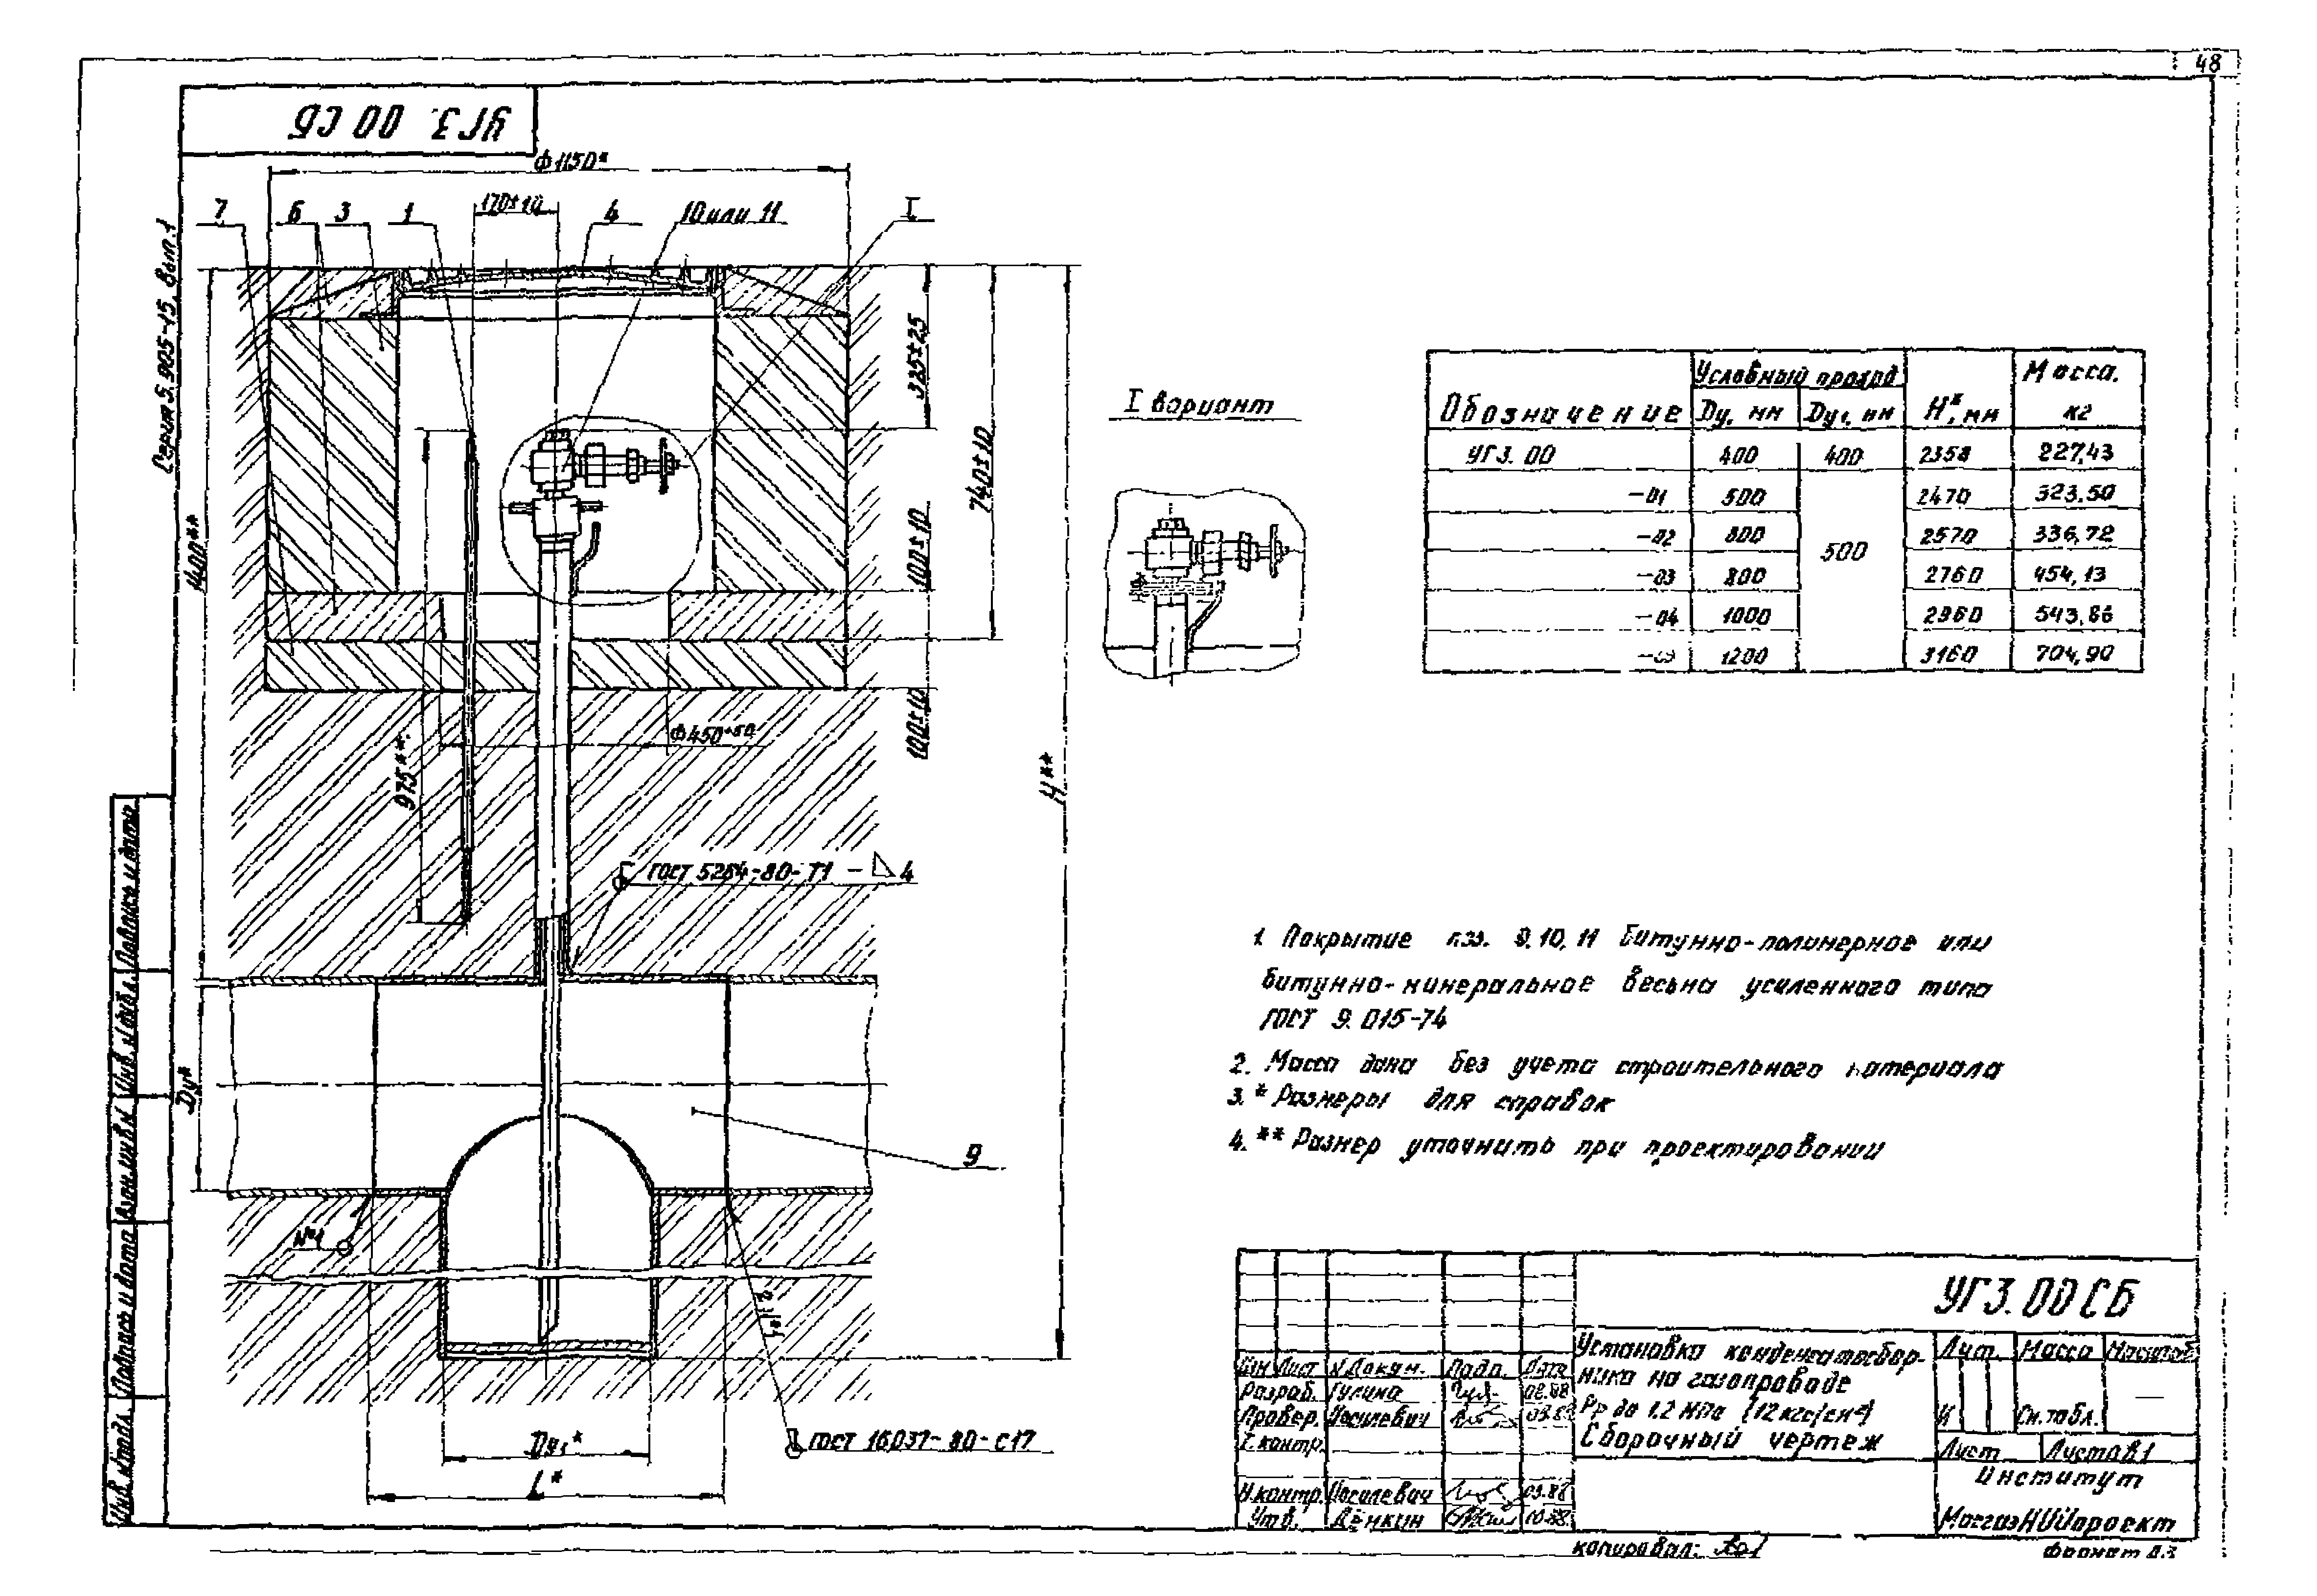 48
УГ3. 00 СБ
Серия 5.905-15, вып.1
ф1150*
170±10
7
6
3
1
4
10 или 11
I
325±25
740±10
100±10
100±10
1400**
975**
ф450+50
H**
ГОСТ 5264-80-Т1-◺4
Dу*
9
№1
Dу₁*
L*
ГОСТ 16037-80-С17
I вариант
Обозначение
Условный проход
Dу, мм
Dу₁, мм
H*, мм
Масса, кг
УГ3. 00 400 400 2358 227,43
-01 500 500 2470 323.50
-02 2570 336,72
-03 800 2760 454,13
-04 1000 2960 543,86
1200 3160 704,90
1. Покрытие поз. 9, 10, 11 битумно-полимерное или
битумно-минеральное весьма усиленного типа
ГОСТ 9.015-74
2. Масса дана без учета строительного материала
3. * Размеры для справок
4. ** Размер уточнить при проектировании
УГ3. 00 СБ
Установка конденсатосбор-
ника на газопроводе
Рр до 1,2 МПа (12 кгс/см²)
Сборочный чертеж
Лит. Масса Масштаб
И См. табл. —
Лист Листов 1
Институт
МосгазНИИпроект
Изм Лист N Докум. Подп. Дата
Разраб. Гулина 02.88
Провер. Иосилевич 03.88
Т. контр.
Н. контр. Иосилевич 03.88
Утв. Дёнкин 10.88
Копировал:
Формат А3
Подпись и дата
Инв. N дубл.
Взам. инв. N
Подпись и дата
Инв. N подл.